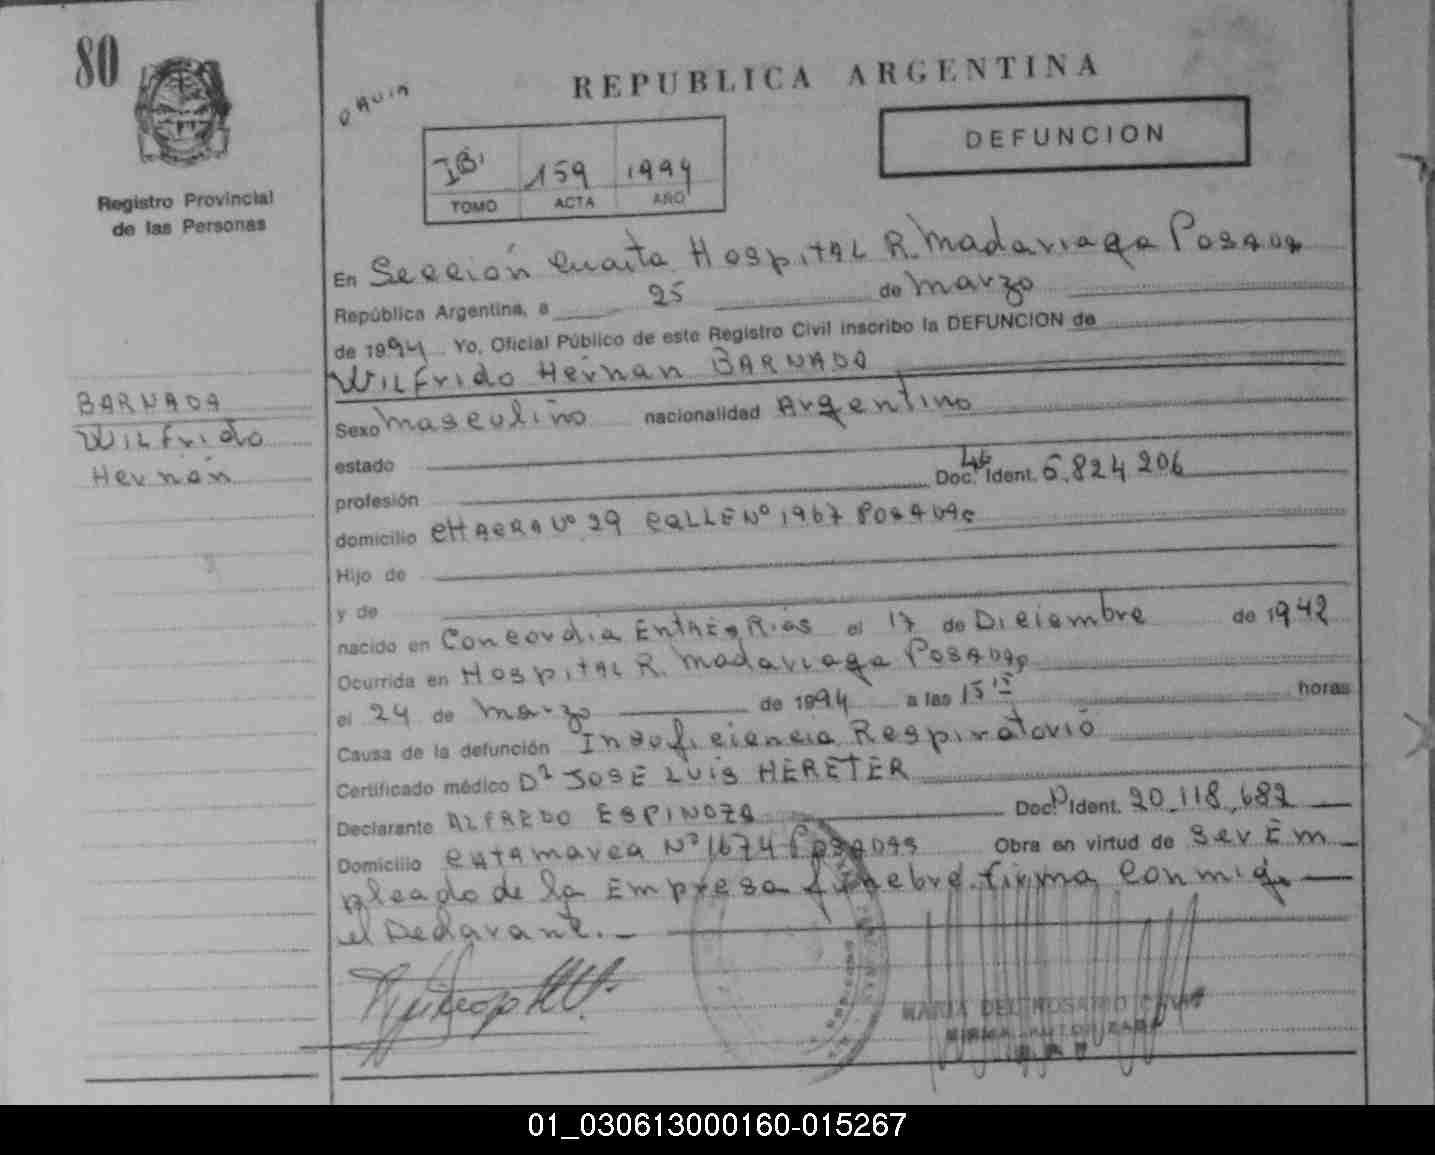 80
REPUBLICA ARGENTINA
DEFUNCION
Registro Provincial
de las Personas
159 1994
TOMO ACTA AÑO
En Sección Cuarta Hospital R. Madariaga Posadas
República Argentina, a 25 de Marzo
de 1994 Yo, Oficial Público de este Registro Civil inscribo la DEFUNCION de
Wilfrido Hernan BARNADA
BARNADA
Wilfrido
Hernán
Sexo masculino nacionalidad Argentino
estado
profesión Doc. Ident. 5.824.206
domicilio CHACRA Nº 29 CALLE Nº 1967 POSADAS
Hijo de
y de
nacido en Concordia Entre Rios el 17 de Diciembre de 1942
Ocurrida en Hospital R. Madariaga Posadas
el 24 de Marzo de 1994 a las 15 15 horas
Causa de la defunción Insuficiencia Respiratorio
Certificado médico Dr JOSE LUIS HERETER
Declarante ALFREDO ESPINOZA Doc. Ident. 20.118.682
Domicilio Catamarca Nº 1674 Posadas Obra en virtud de ser Em
pleado de la Empresa funebre. firma conmigo
el Declarante.
MARIA DEL ROSARIO
FIRMA AUTORIZADA
01_030613000160-015267